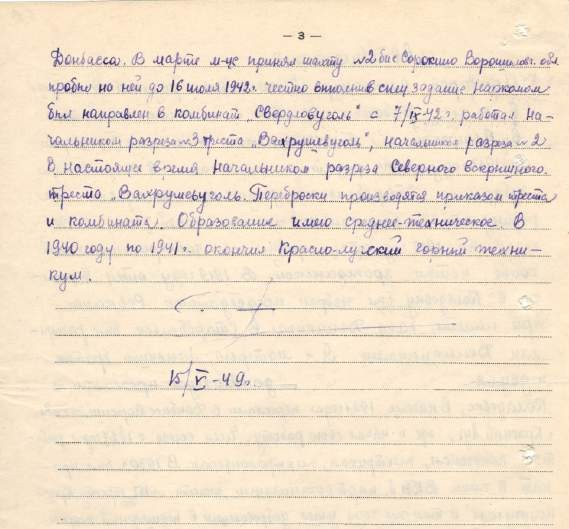 — 3 —
Донбасса. В марте м-це принял шахту №2 бис Сорокино Ворошиловг. обл.
пробыл на ней до 16 июля 1942 г. честно выполнив спец задание наркомом
был направлен в комбинат „Свердловуголь" с 7/IX-42 г. работал на-
чальником разреза №3 треста „Вахрушевуголь", начальником разреза №2
В настоящее время начальником разреза Северного
треста „Вахрушевуголь. Переброски производятся приказом треста
и комбината. Образование имею среднее-техническое. В
1940 году по 1941 г. окончил Красно-лучский горный техни-
кум.
15/V-49 г.